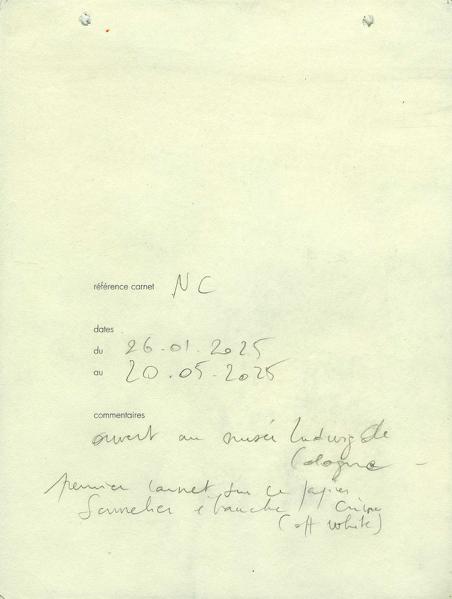 référence carnet NC
dates
du 26.01.2025
au 20.05.2025
commentaires
ouvert au musée Ludwig de
Cologne -
premier carnet sur ce papier
Sennelier ébauche crème
(off white)